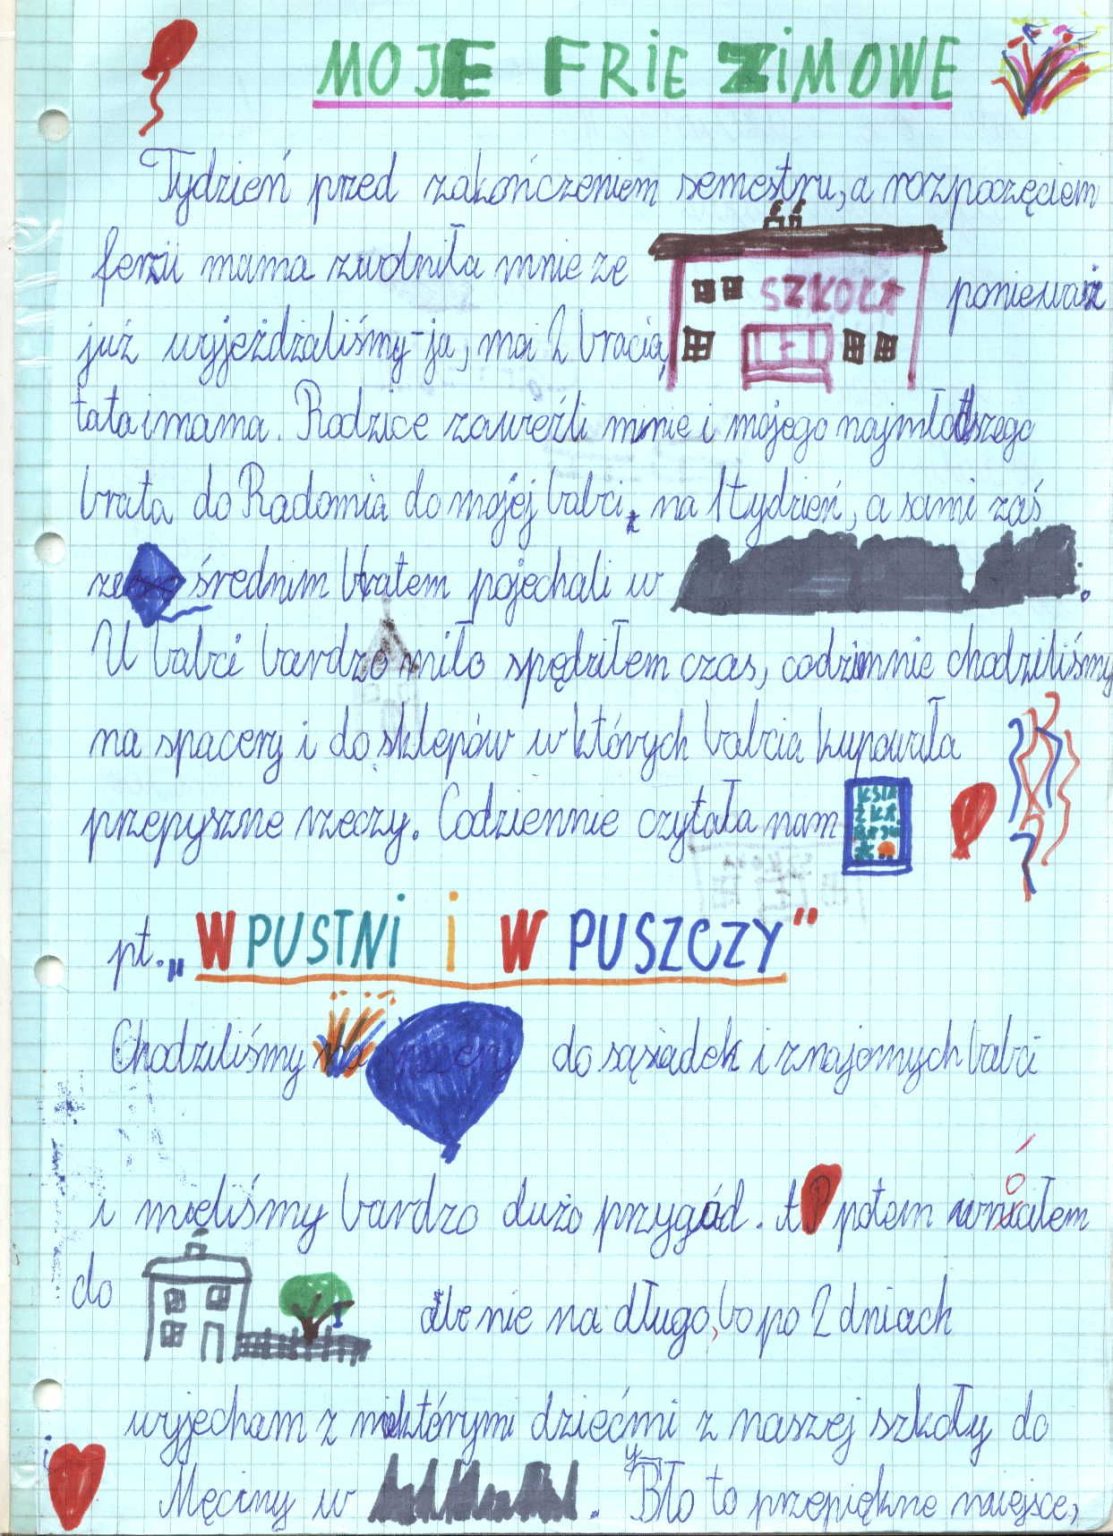 MOJE FRIE ZIMOWE
Tydzień przed zakończeniem semestru, a rozpoczęciem
ferii mama zwolniła mnie ze
SZKOŁA
ponieważ
już wyjeżdżaliśmy-ja, moi 2 bracia,
tata i mama. Rodzice zawieźli mnie i mojego najmłodszego
brata do Radomia do mojej babci, na 1 tydzień, a sami zaś
ze średnim bratem pojechali w .
U babci bardzo miło spędziłem czas, codziennie chodziliśmy
na spacery i do sklepów w których babcia kupowała
przepyszne rzeczy. Codziennie czytała nam
KSIĄ
ŻKA
pt. „W PUSTNI I W PUSZCZY"
Chodziliśmy do sąsiadek i znajomych babci
i mieliśmy bardzo dużo przygód. A potem wróciałem
do ale nie na długo, bo po 2 dniach
wyjecham z niektórymi dziećmi z naszej szkoły do
Męciny w . Było to przepiękne miejsce,